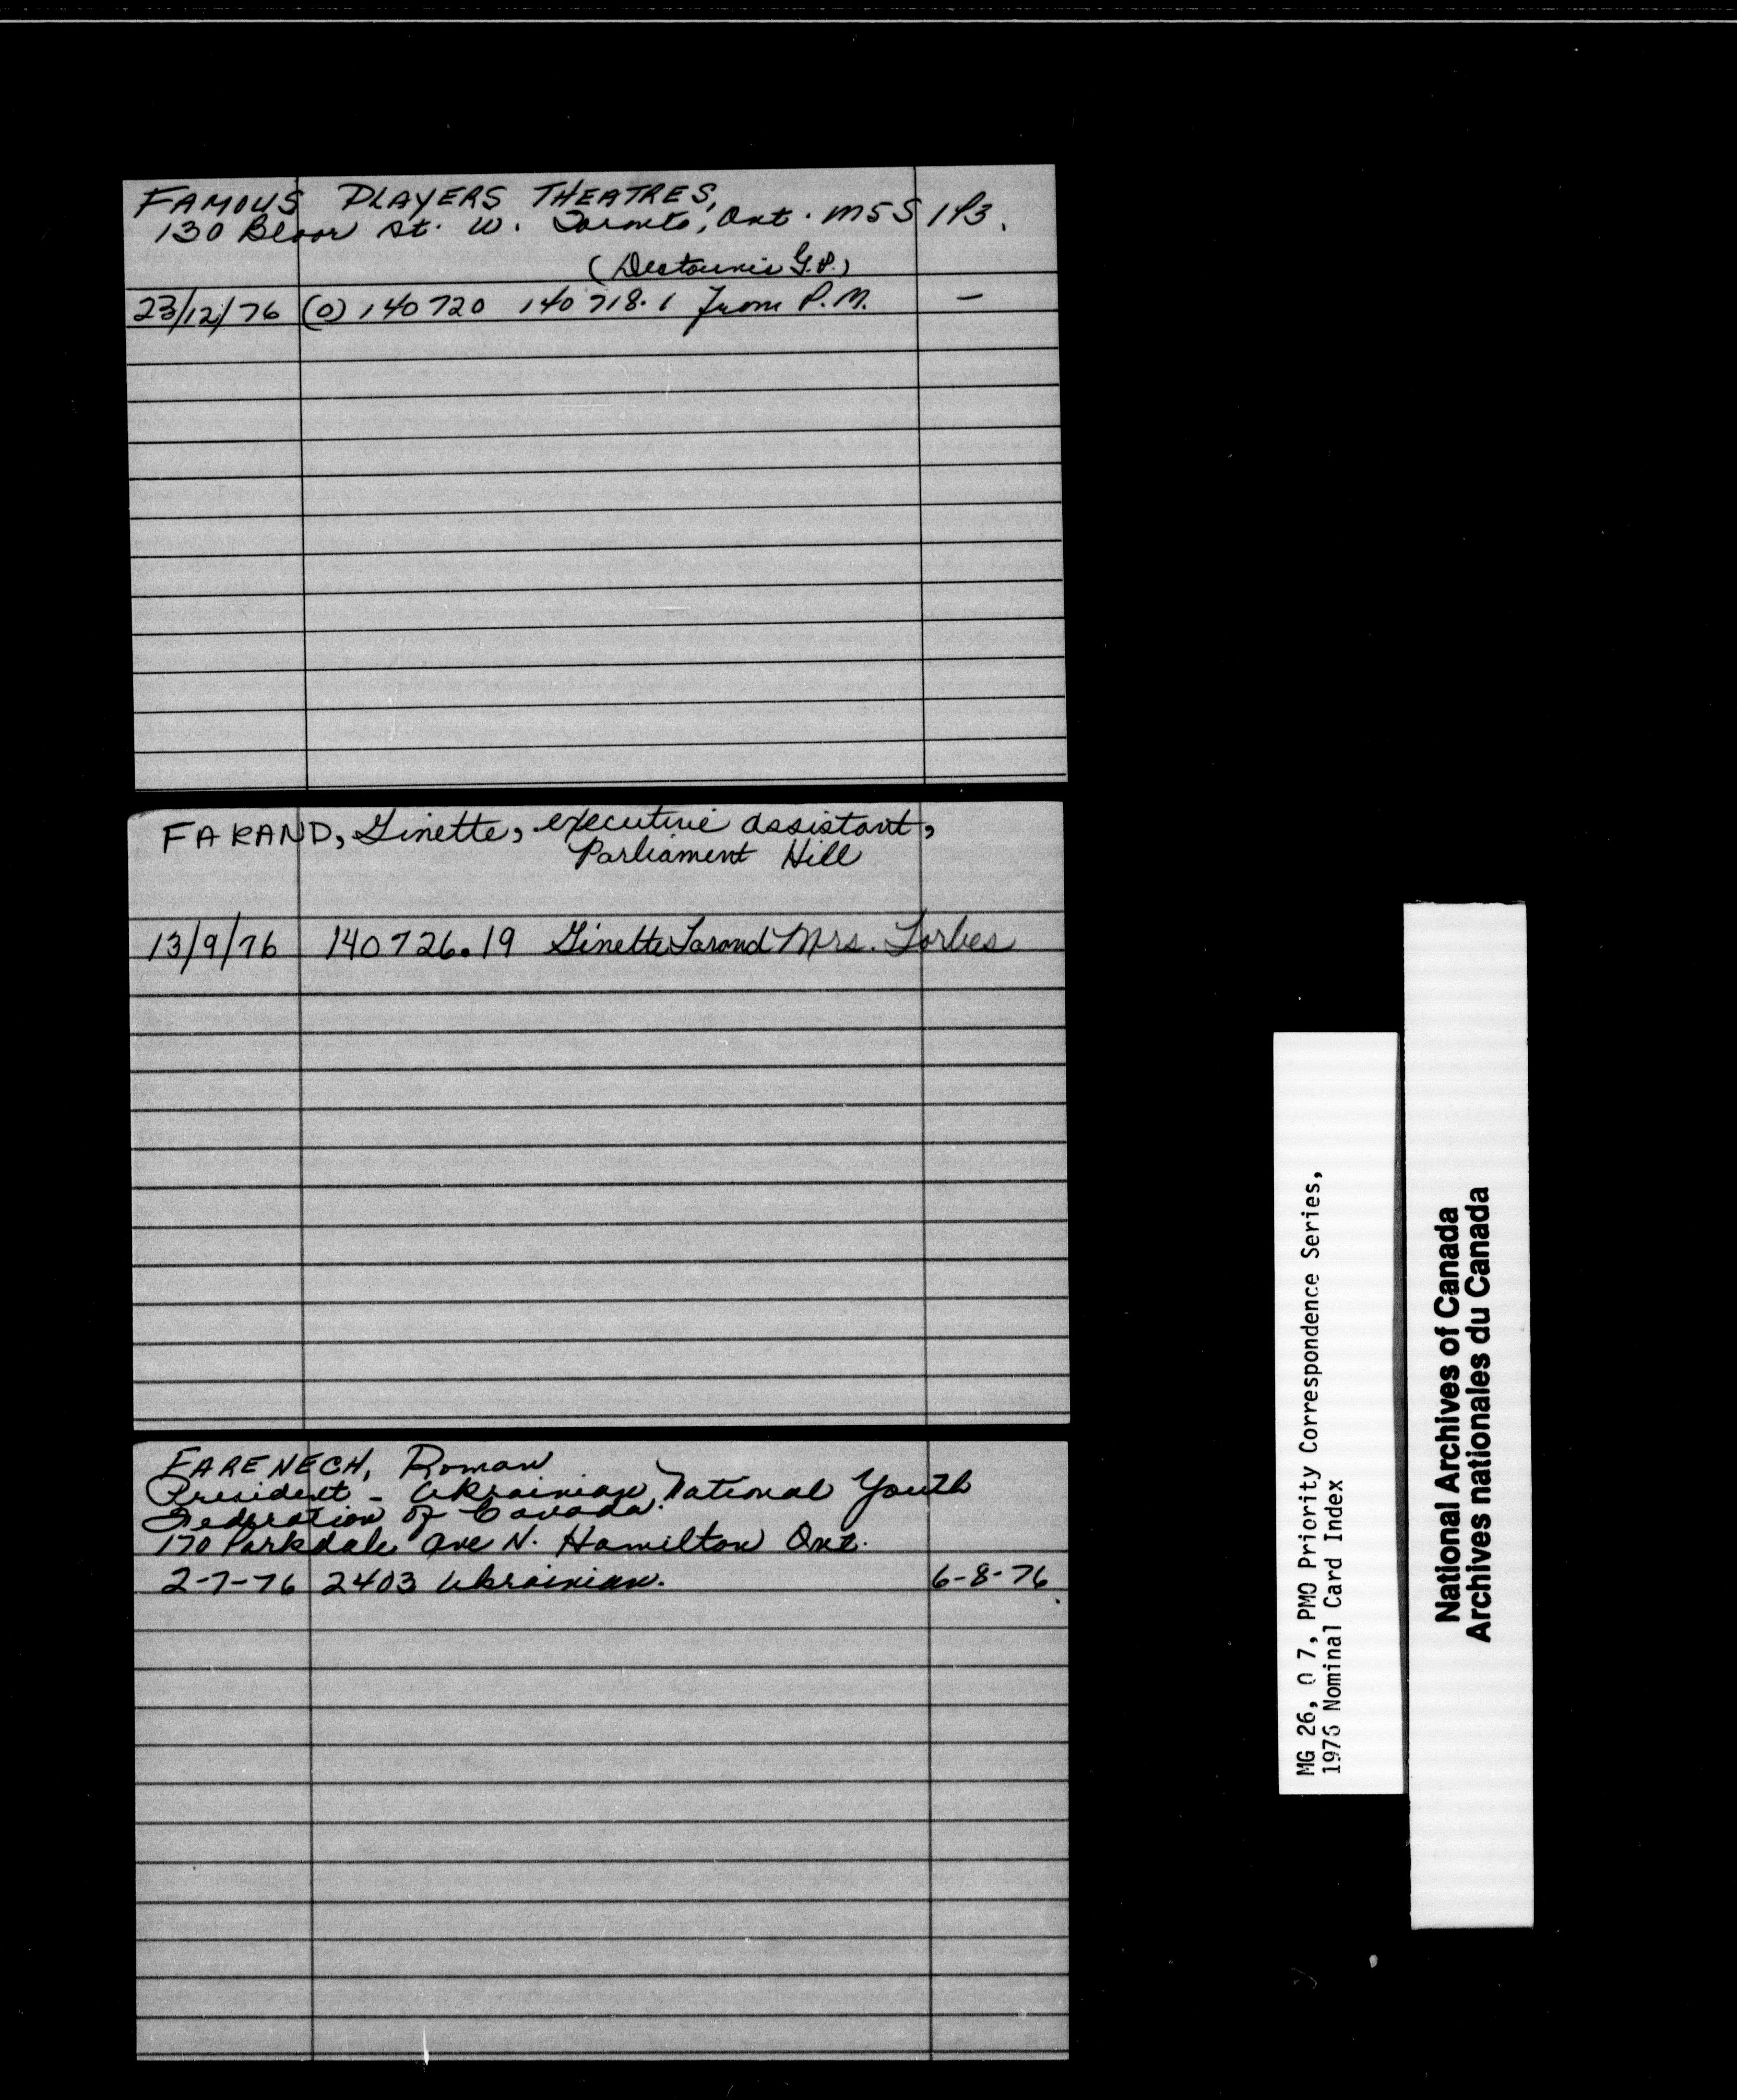 FAMOUS PLAYERS THEATRES,
130 Bloor St. W. Toronto, Ont. M5S 1P3.
(Destounis G.P.)
23/12/76 (0) 140720 140718.1 From P.M. —
FARAND, Ginette, executive assistant,
Parliament Hill
13/9/76 140726.19 Ginette Farand Mrs. Forbes
FARENECH, Roman
President - Ukrainian National Youth
Federation of Canada.
170 Parkdale Ave N. Hamilton Ont.
2-7-76 2403 Ukrainian. 6-8-76
MG 26, O 7, PMO Priority Correspondence Series,
1976 Nominal Card Index
National Archives of Canada
Archives nationales du Canada